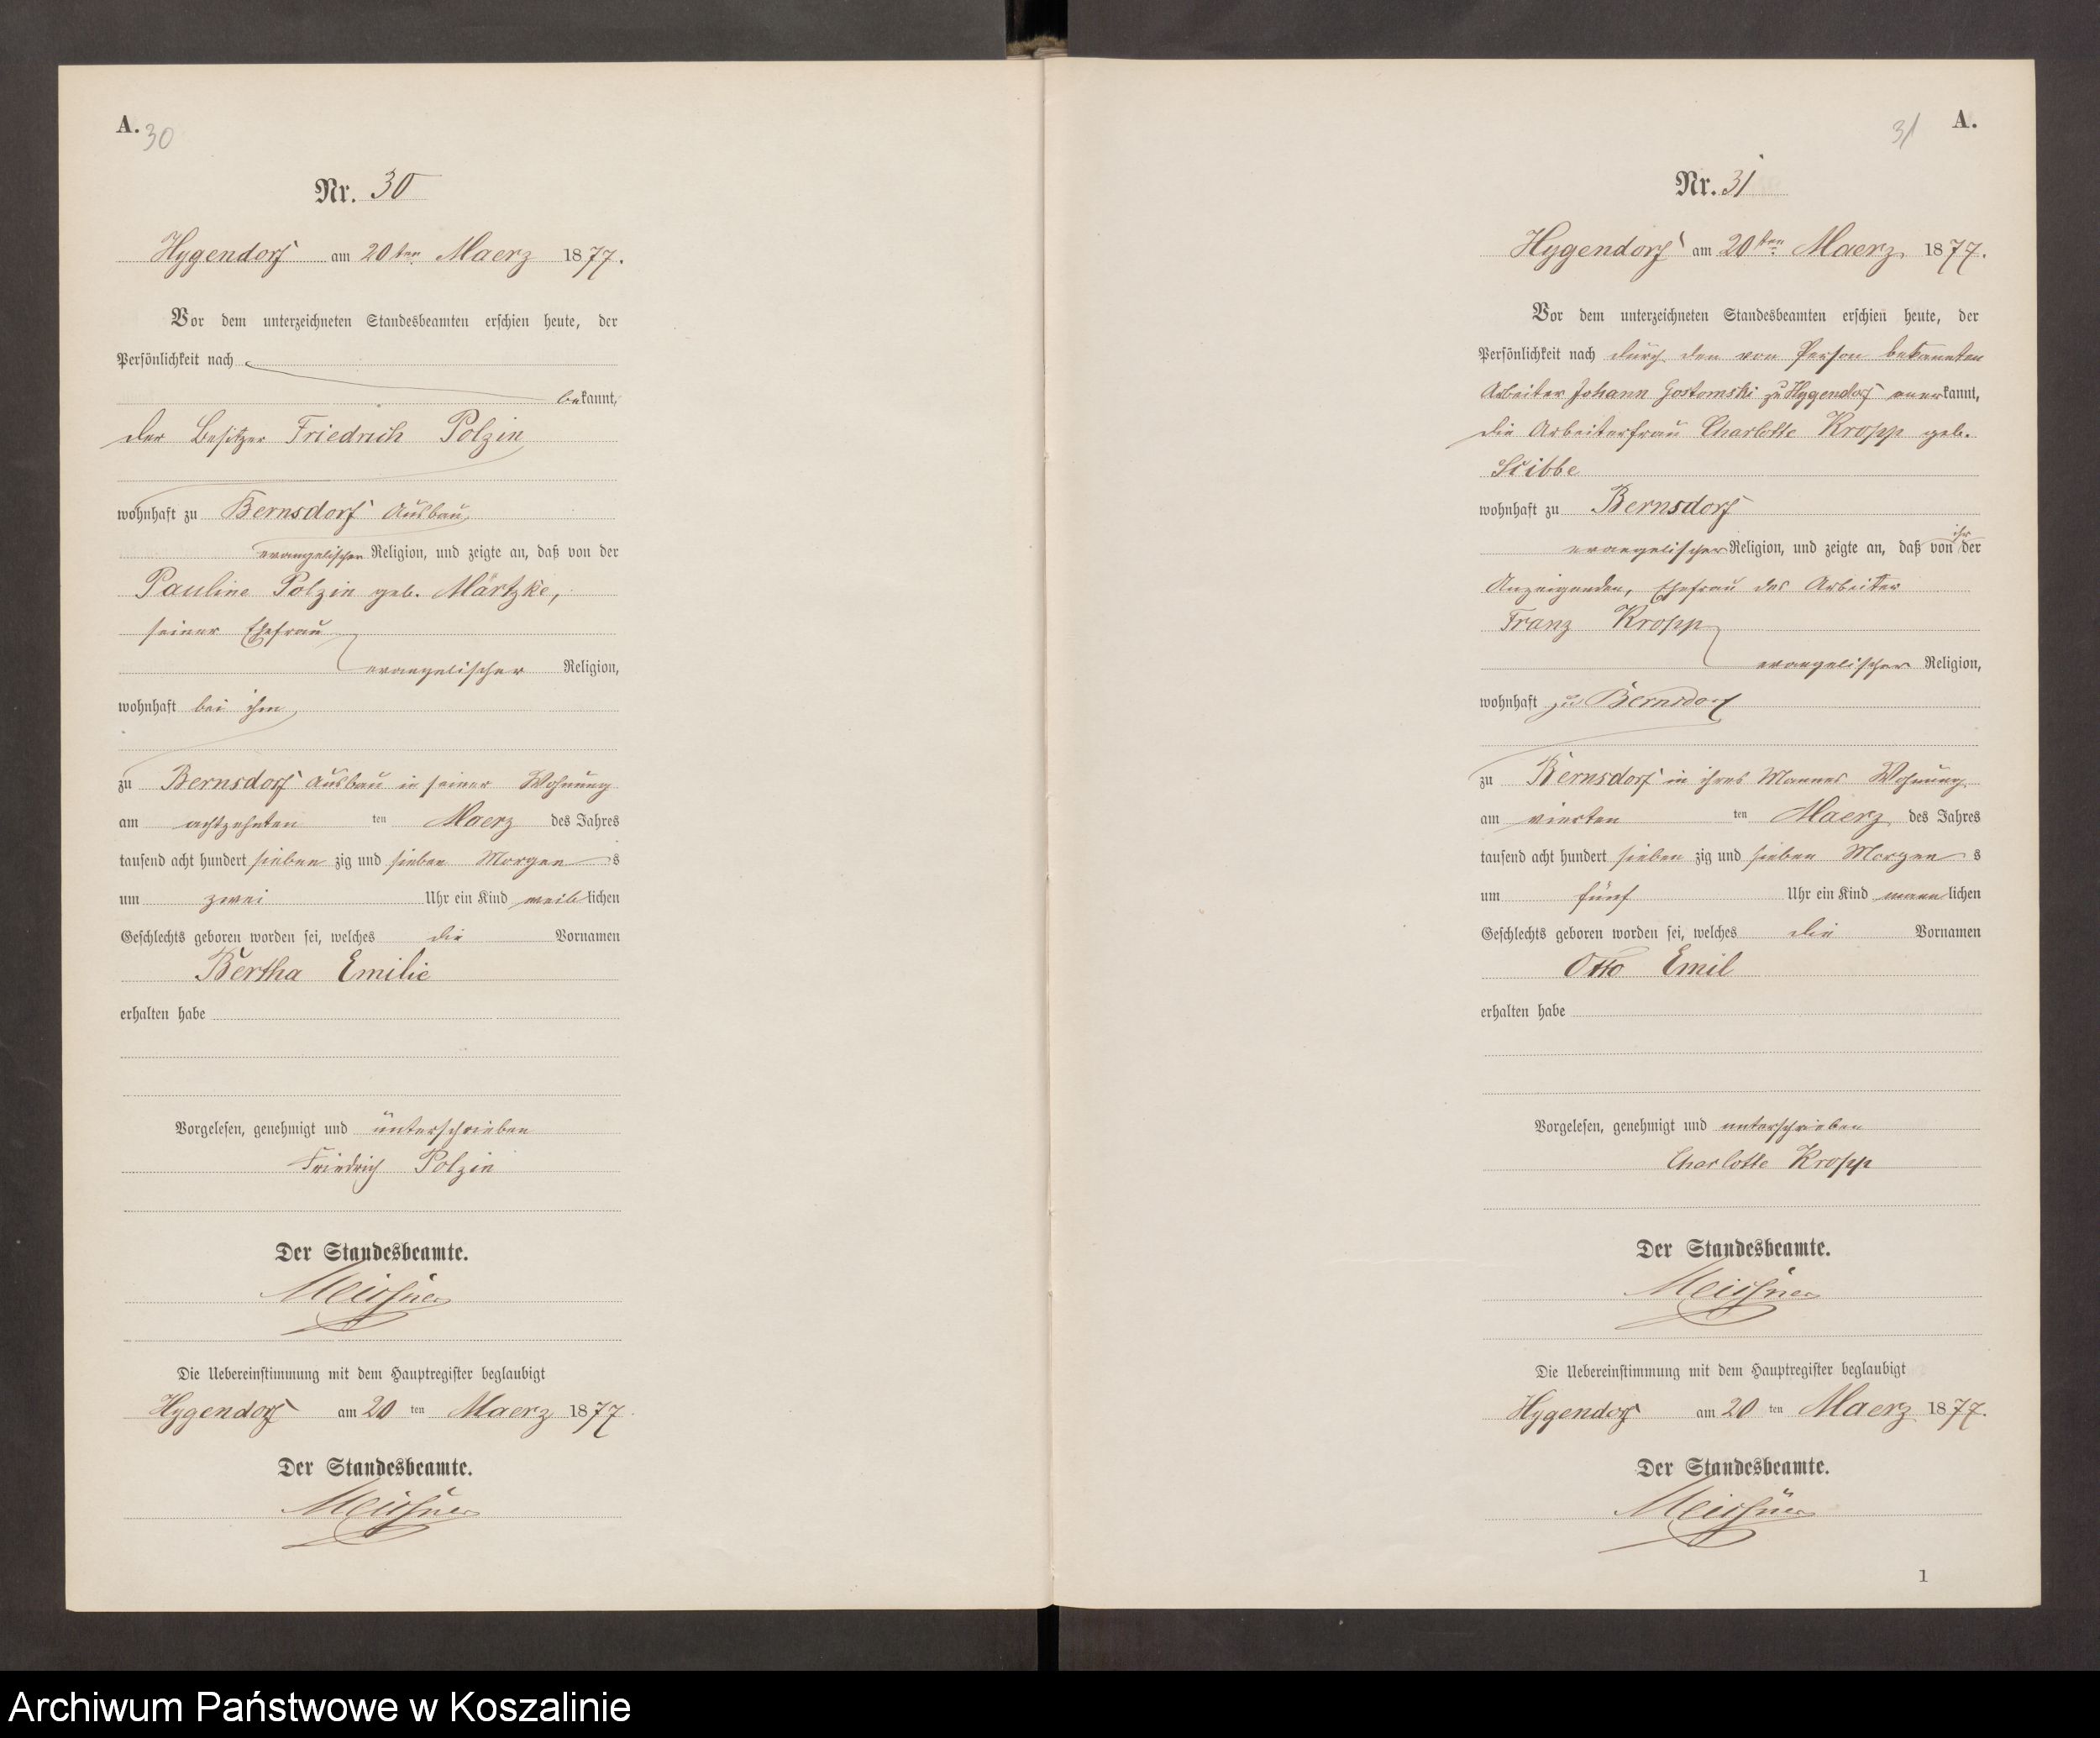 A.
30
Nr. 30
Hygendorf am 20ten Maerz 1877.
Vor dem unterzeichneten Standesbeamten erschien heute, der
Persönlichkeit nach
bekannt,
der Besitzer Friedrich Polzin
wohnhaft zu Bernsdorf Ausbau
evangelischer Religion, und zeigte an, daß von der
Pauline Polzin geb. Märtzke,
seiner Ehefrau
evangelischer Religion,
wohnhaft bei ihm
zu Bernsdorf Ausbau in seiner Wohnung
am achtzehnten ten Maerz des Jahres
tausend acht hundert sieben zig und sieben Morgens
um zwei Uhr ein Kind weiblichen
Geschlechts geboren worden sei, welches die Vornamen
Bertha Emilie
erhalten habe
Vorgelesen, genehmigt und unterschrieben
Friedrich Polzin
Der Standesbeamte.
Meissner
Die Uebereinstimmung mit dem Hauptregister beglaubigt
Hygendorf am 20 ten Maerz 1877.
Der Standesbeamte.
Meissner
31
A.
Nr. 31
Hygendorf am 20ten Maerz 1877.
Vor dem unterzeichneten Standesbeamten erschien heute, der
Persönlichkeit nach durch den von Person bekannten
Arbeiter Johann Gostomski zu Hygendorf anerkannt,
die Arbeiterfrau Charlotte Kropp geb.
Stibbe
wohnhaft zu Bernsdorf
evangelischer Religion, und zeigte an, daß von ihr der
Anzeigenden, Ehefrau des Arbeiter
Franz Kropp
evangelischer Religion,
wohnhaft zu Bernsdorf
zu Bernsdorf in ihres Mannes Wohnung
am vierten ten Maerz des Jahres
tausend acht hundert sieben zig und sieben Morgens
um fünf Uhr ein Kind mannlichen
Geschlechts geboren worden sei, welches die Vornamen
Otto Emil
erhalten habe
Vorgelesen, genehmigt und unterschrieben
Charlotte Kropp
Der Standesbeamte.
Meissner
Die Uebereinstimmung mit dem Hauptregister beglaubigt
Hygendorf am 20 ten Maerz 1877.
Der Standesbeamte.
Meissner
1
Archiwum Państwowe w Koszalinie